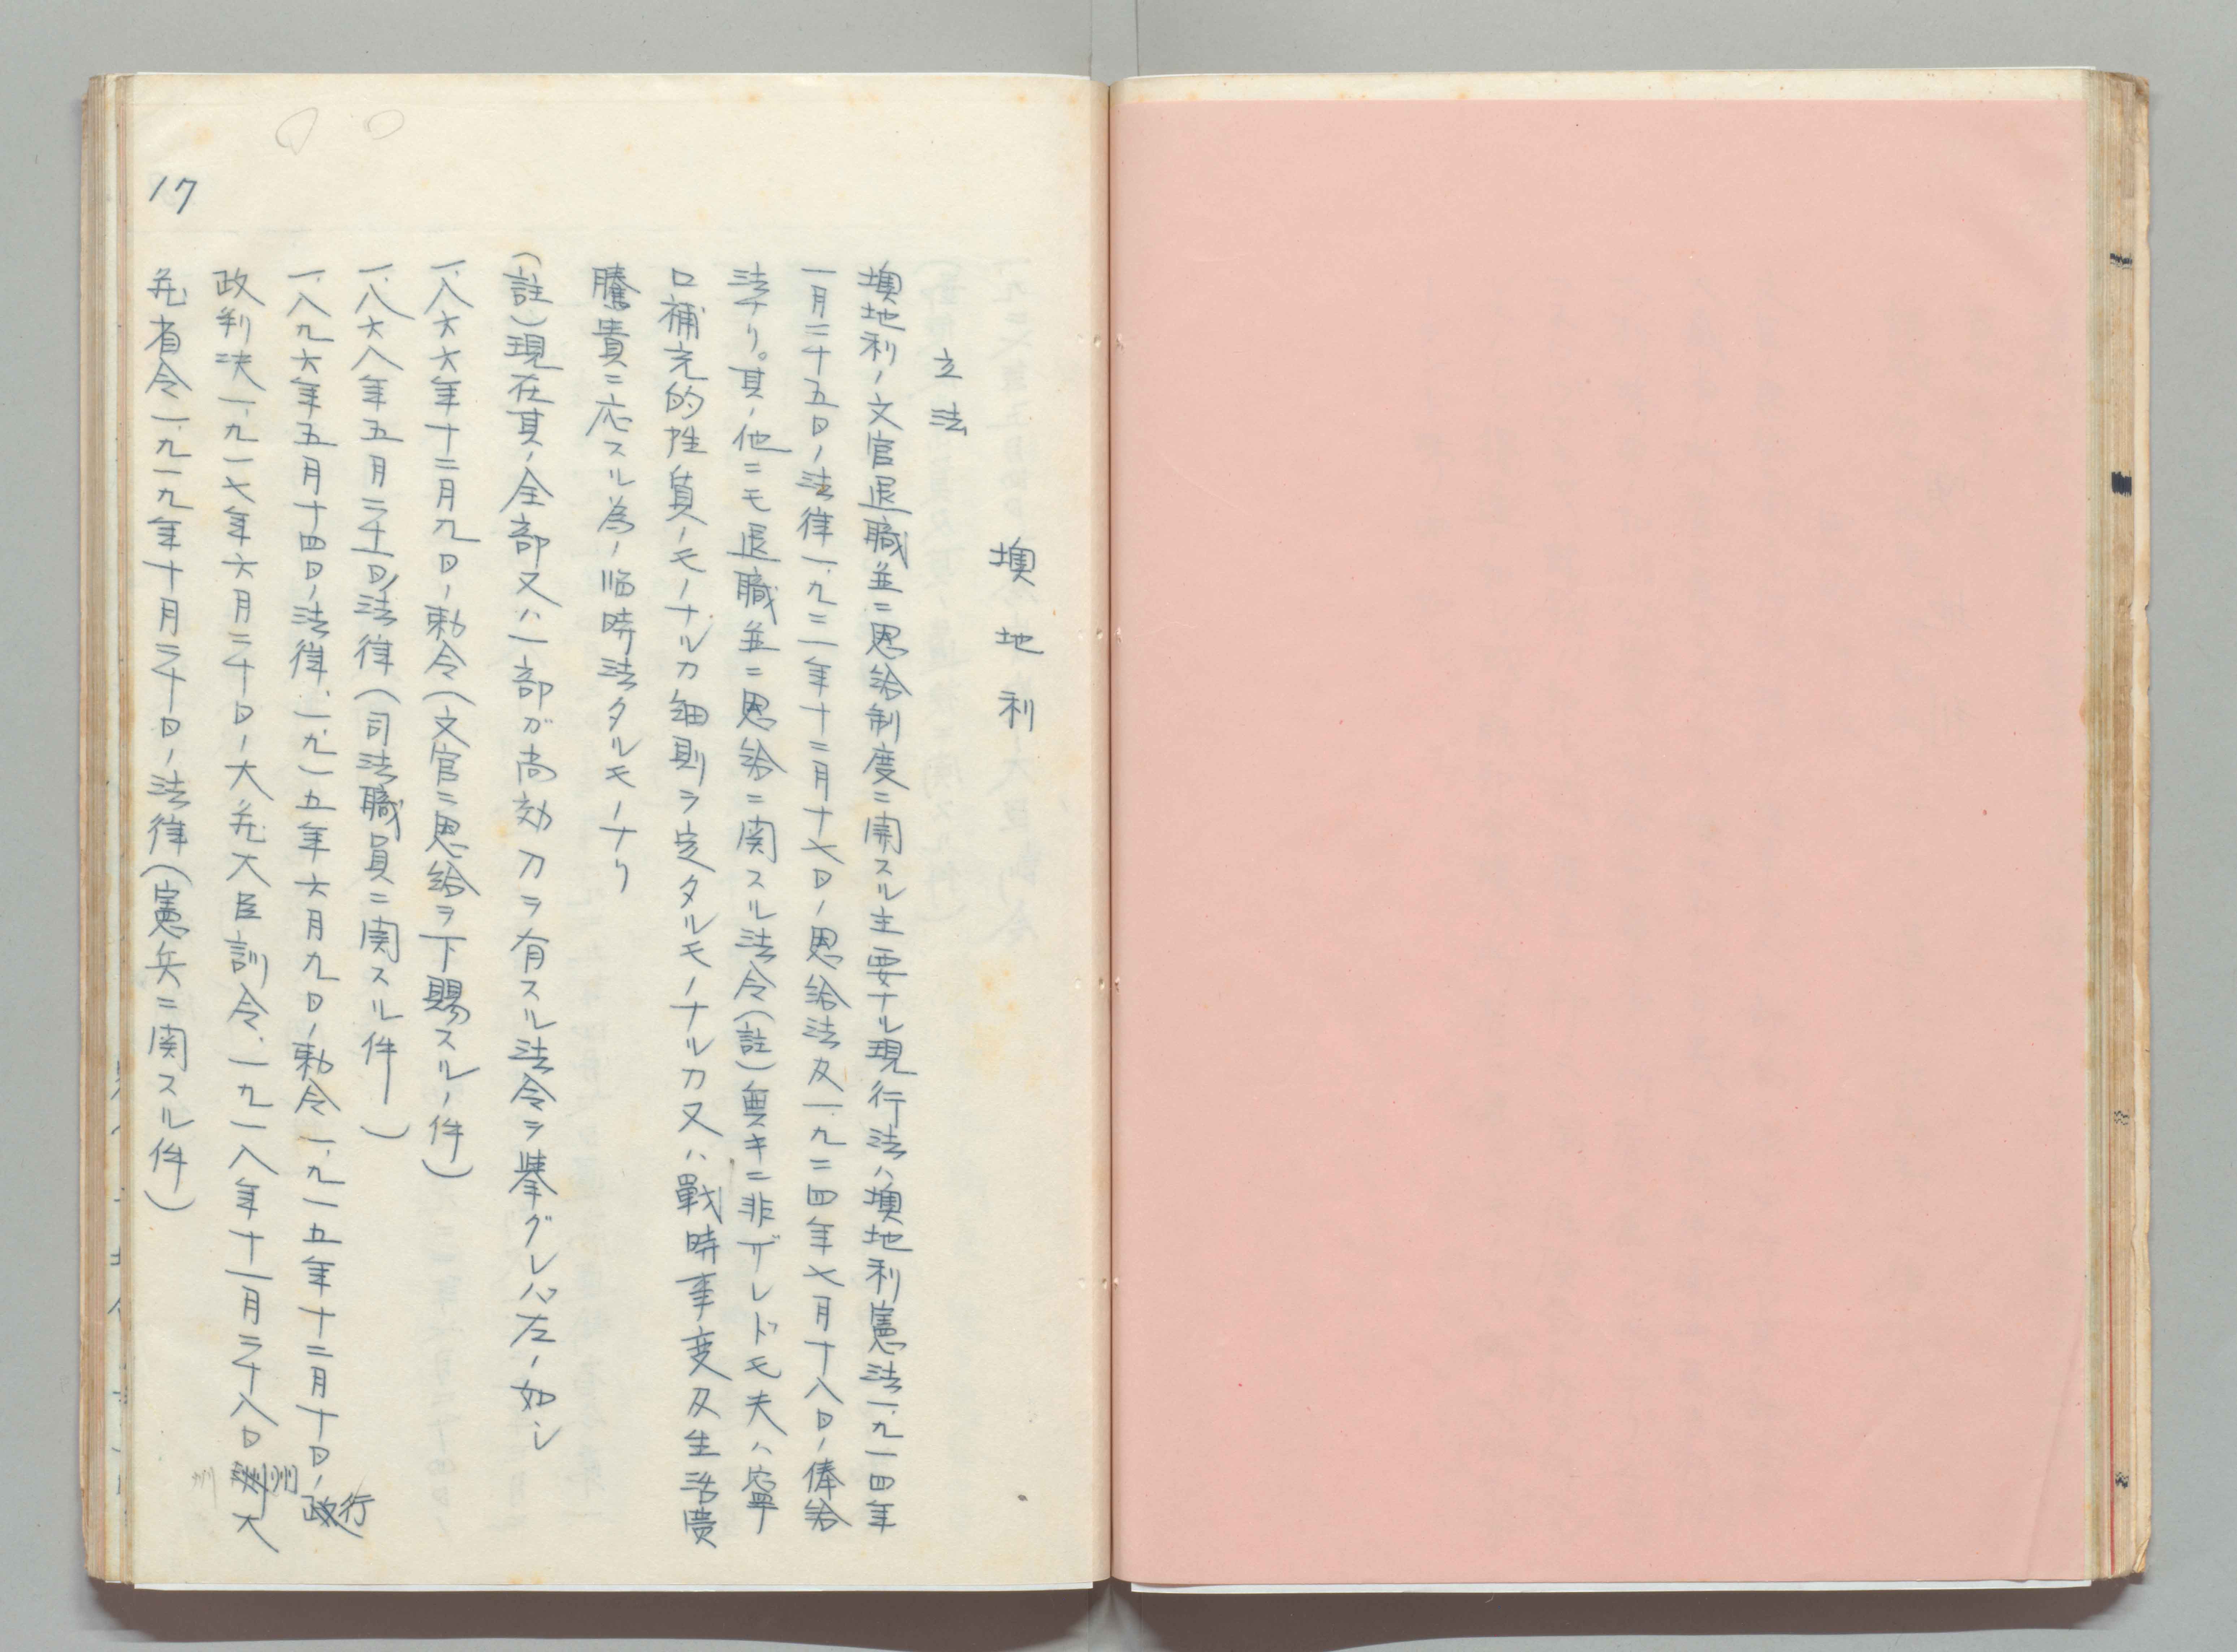 墺地利
立法
墺地利ノ文官退職並ニ恩給制度ニ関スル主要ナル現行法ハ墺地利憲法一、九一四年
一月二十五日ノ法律一、九二一年十二月十七日ノ恩給法及一、九二四年七月十八日ノ俸給
法ナリ。其ノ他ニモ退職並ニ恩給ニ関スル法令(註)無キニ非ザレドモ夫ハ寧
ロ補充的性質ノモノナルカ細則ヲ定タルモノナルカ又ハ戰時事変及生活費
騰貴ニ応スル為ノ臨時法タルモノナリ
(註)現在其ノ全部又ハ一部ガ尚効力ヲ有スル法令ヲ挙グレバ左ノ如シ
一、八六六年十二月九日ノ勅令(文官ニ恩給ヲ下賜スルノ件)
一、八六八年五月二十一日ノ法律(司法職員ニ関スル件)
一、八九六年五月十四日ノ法律、一、九一五年六月九日ノ勅令一、九一五年十二月十日ノ行
政判決一、九一七年六月三十日ノ大蔵大臣訓令、一、九一八年十一月二十八日州大
蔵省令一、九一九年十月三十日ノ法律(憲兵ニ関スル件)
17